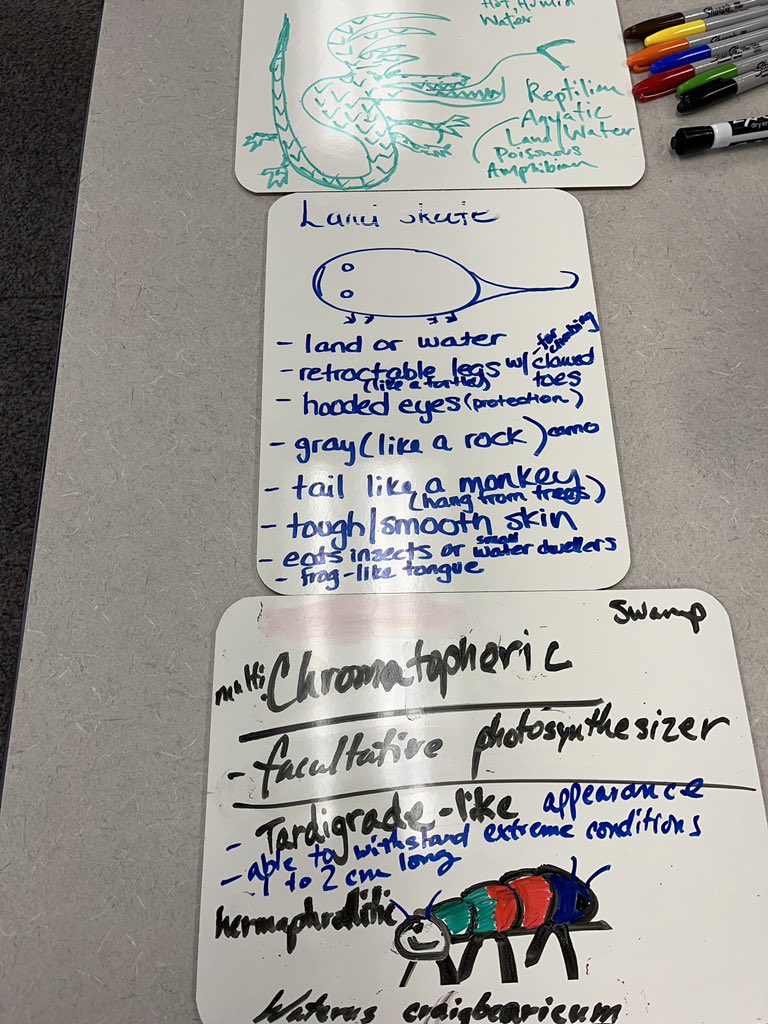 Hot, Humid
Water
Reptilian
Aquatic
Land/Water
Poisonous
Amphibian
Land skate
- land or water
- retractable legs w/ clawed toes
(like a turtle)
- for climbing
- hooded eyes (protection)
- gray (like a rock) camo
- tail like a monkey
(hang from trees)
- tough/smooth skin
- eats insects or small water dwellers
- frog-like tongue
Swamp
multi-Chromatophoric
- facultative photosynthesizer
- Tardigrade-like appearance
- able to withstand extreme conditions
- to 2 cm long
hermaphroditic
Waterus craigbearicum
Sharpie